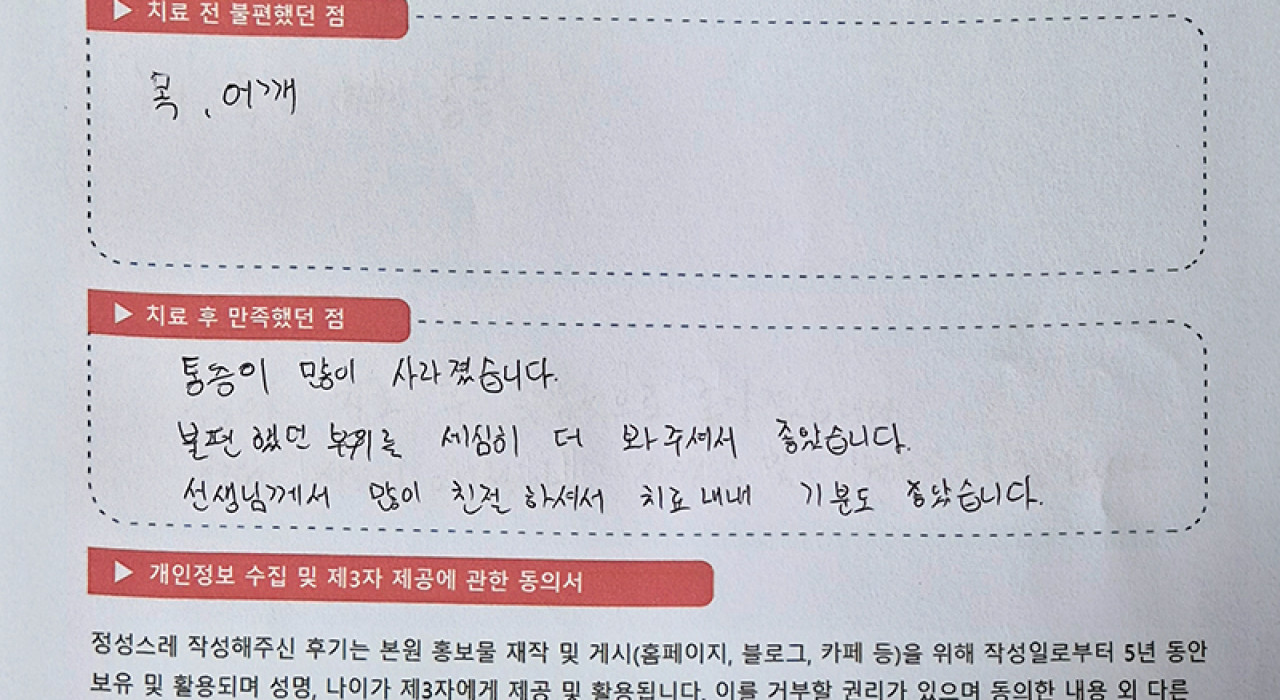 ▶ 치료 전 불편했던 점
목, 어깨
▶ 치료 후 만족했던 점
통증이 많이 사라졌습니다.
불편했던 부위를 세심히 더 봐주셔서 좋았습니다.
선생님께서 많이 친절하셔서 치료내내 기분도 좋았습니다.
▶ 개인정보 수집 및 제3자 제공에 관한 동의서
정성스레 작성해주신 후기는 본원 홍보물 재작 및 게시(홈페이지, 블로그, 카페 등)을 위해 작성일로부터 5년 동안
보유 및 활용되며 성명, 나이가 제3자에게 제공 및 활용됩니다. 이를 거부할 권리가 있으며 동의한 내용 외 다른